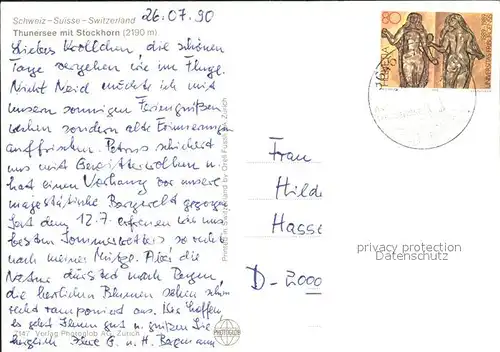 Schweiz - Suisse - Switzerland
Thunersee mit Stockhorn (2190 m)
26.07.90
80
HELVETIA
Liebes Karlchen, die schönen
Tage vergehen wie im Fluge.
Nicht Neid möchte ich mit
unsern sonnigen Feriengrüßen
wecken sondern alte Erinnerungen
auffrischen. Petrus schickt
uns mit Gewitterwolken u.
hat einen Vorhang vor unsere
majestätische Bergwelt gezogen
Seit dem 12.7. erfreuen wir uns
besten Sommerwetters so recht
nach meiner Mütze. Aber die
Natur dürstet nach Regen
die herrlichen Blumen sehen schon
recht ramponiert aus. Wir hoffen,
es geht Ihnen gut u. grüßen Sie
herzlich Ihre G. u. H. Bergmann
Frau
Hilde
Hasse
D-2000
privacy protection
Datenschutz
Printed in Switzerland by Orell Füssli, Zürich
7147 Verlag Photoglob AG, Zürich
PHOTOGLOB